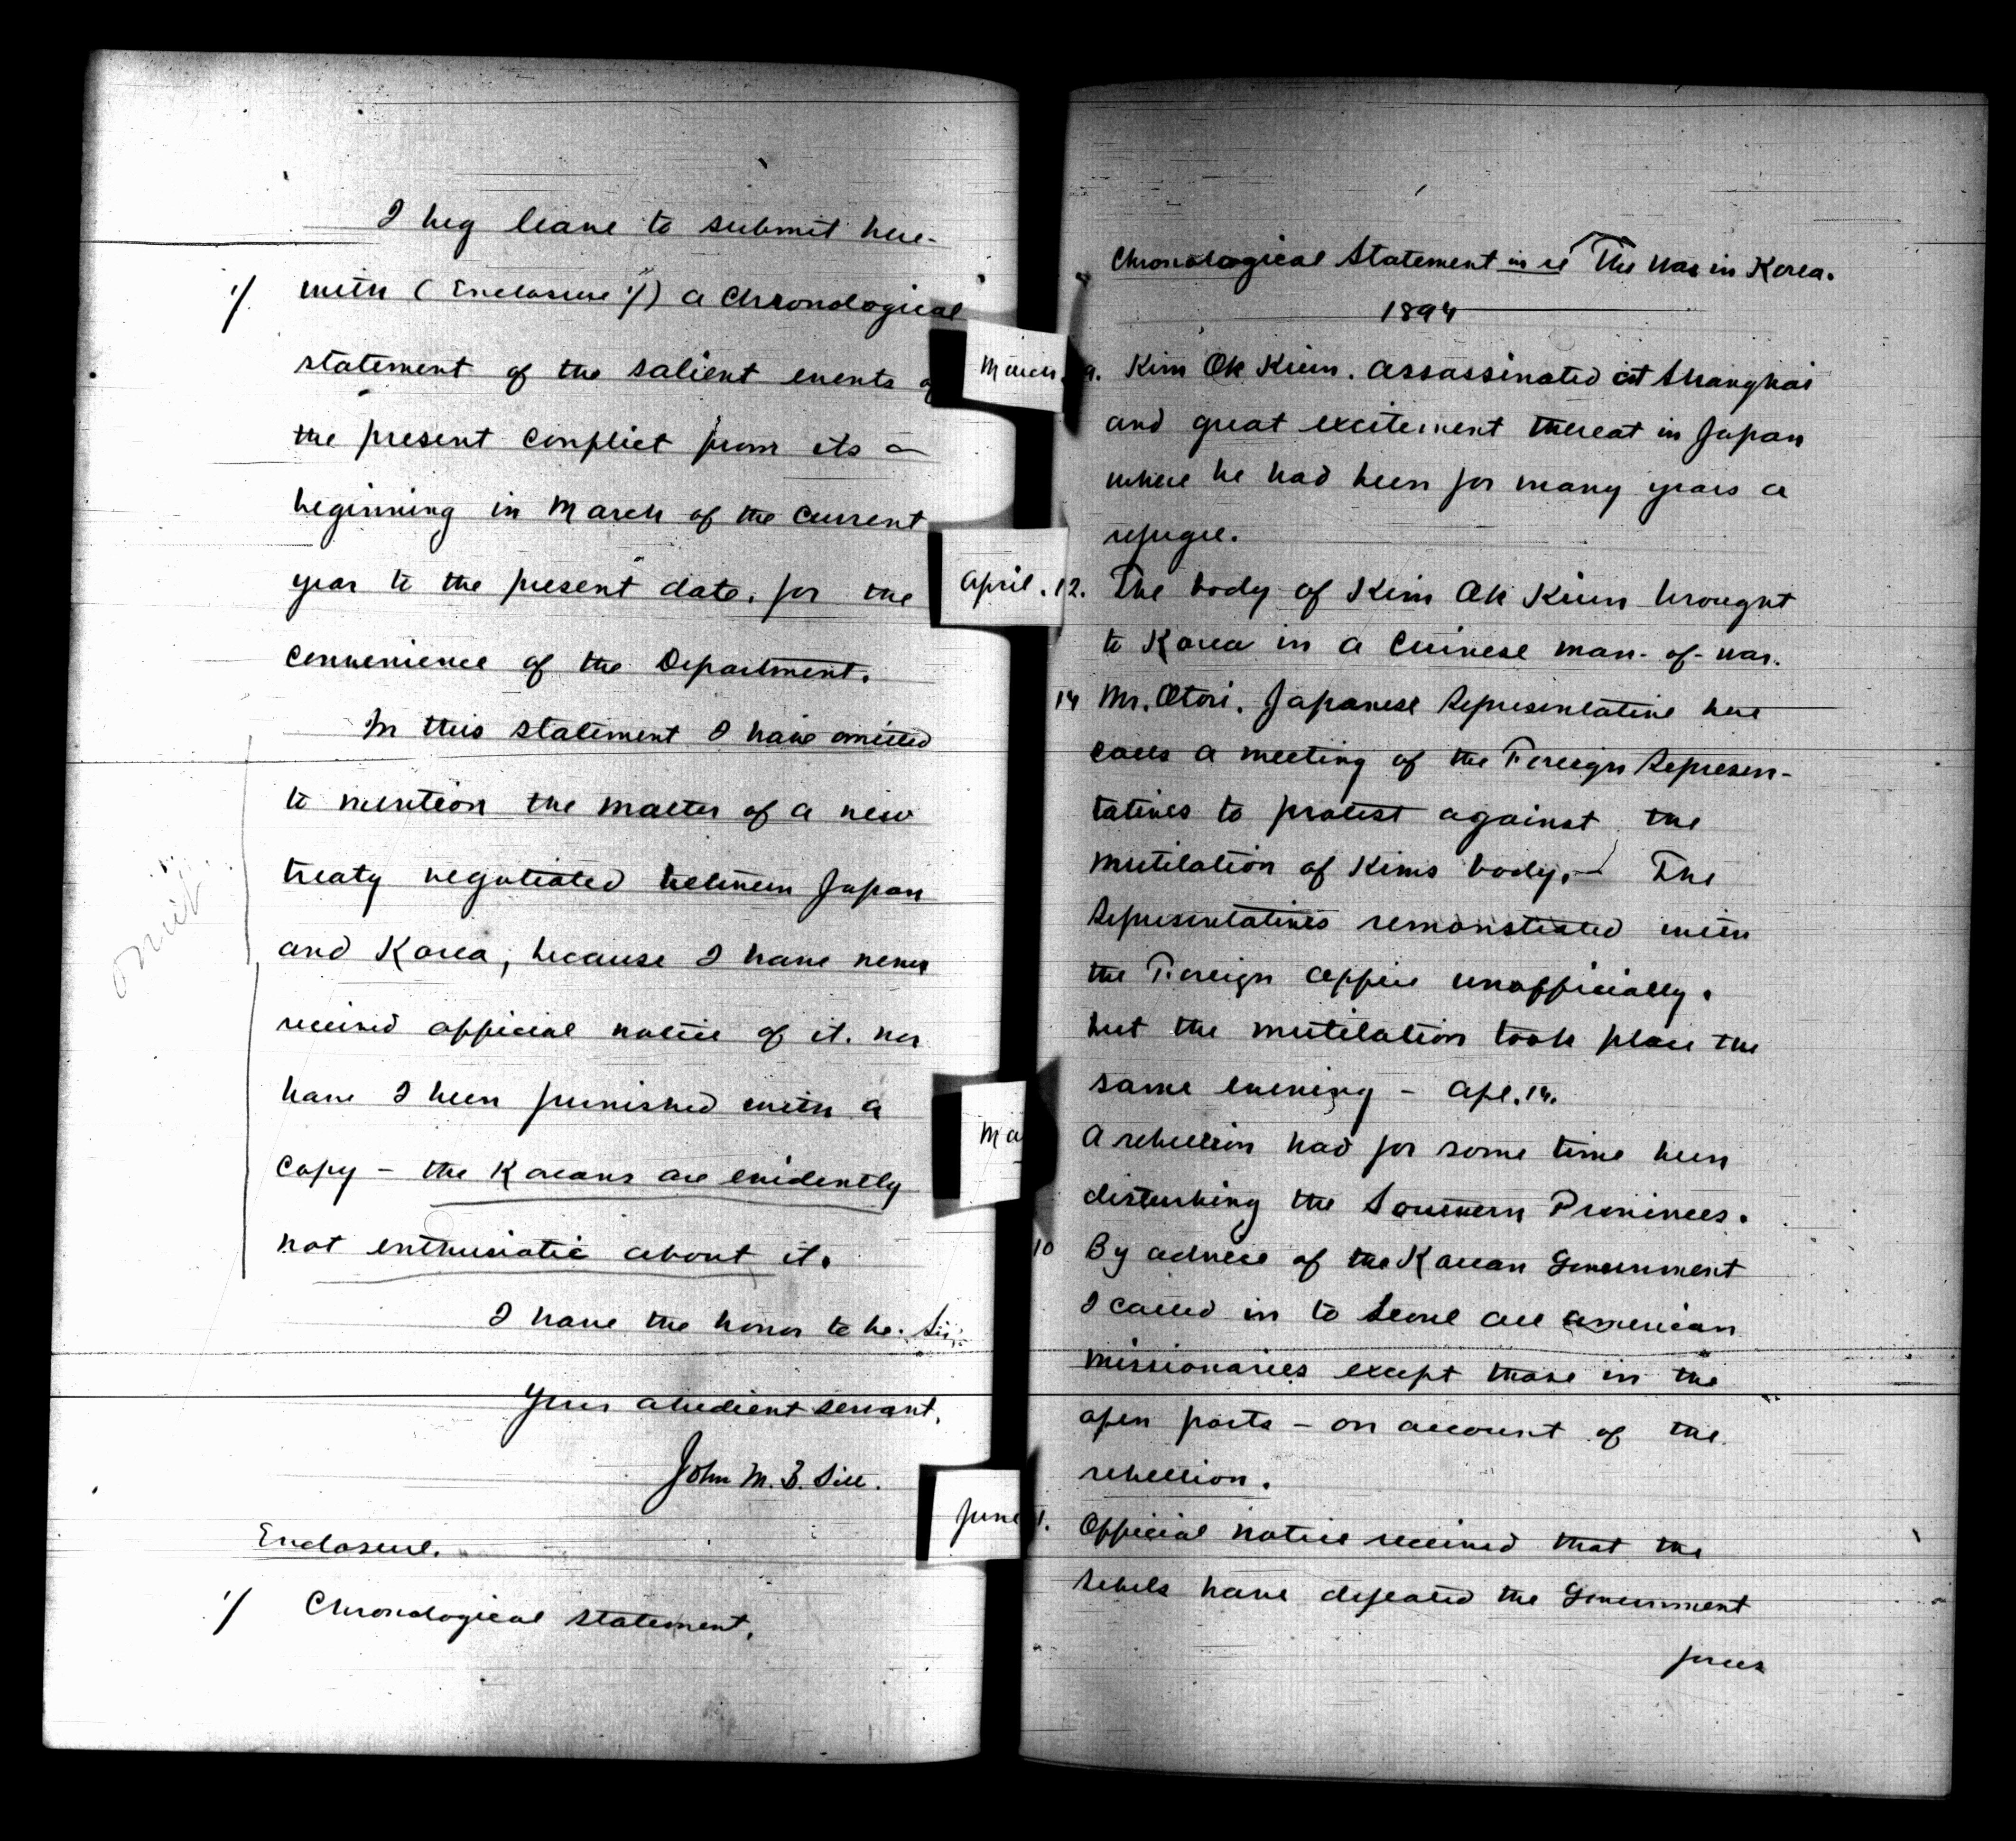 I beg leave to submit here-
1/ with (Enclosure 1/) a Chronological
statement of the salient events of
the present conflict from its
beginning in March of the current
year to the present date, for the
convenience of the Department.
In this statement I have omitted
to mention the matter of a new
treaty negotiated between Japan
and Korea, because I have never
received official notice of it. nor
have I been furnished with a
copy – the Koreans are evidently
not enthusiatic about it.
omit
I have the honor to be. Sir,
Your obedient servant,
John M. B. Sill.
Enclosure.
1/ Chronological statement.
Chronological Statement in re The War in Korea.
1894
March 9. Kim Ok Kiun. assassinated at Shanghai
and great excitement thereat in Japan
where he had been for many years a
refugee.
April. 12. The body of Kim Ok Kiun brought
to Korea in a Chinese man-of-war.
14 Mr. Otori. Japanese Representative here
calls a meeting of the Foreign Represen-
tatives to protest against the
mutilation of Kims body. – The
Representatives remonstrated with
the Foreign Office unofficially.
but the mutilation took place the
same evening – Apl. 14.
Ma
A rebellion had for some time been
disturbing the Southern Provinces.
10 By advice of the Korean Government
I called in to Seoul all American
missionaries except those in the
open ports – on account of the
rebellion.
June 1. Official notice received that the
rebels have defeated the Government
forces